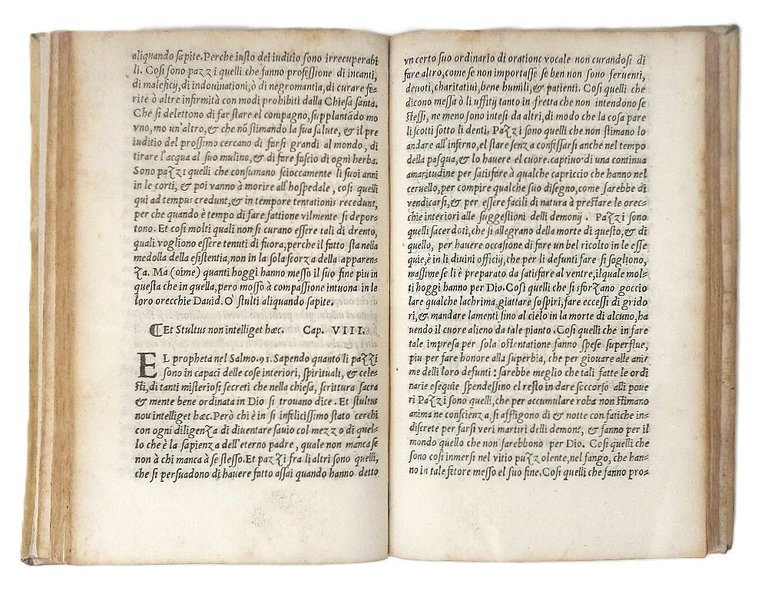 aliquando sapite. Perche iusto dei iuditio sono irrecuperabi
li. Cosi sono pazzi quelli che fanno professione di incanti,
di maleficij, di indouinationi, ò di negromantia, di curare fe
rite ò altre infirmità con modi prohibiti dalla Chiesa santa.
Che si delettono di far stare el compagno, supplantãdo mo
vno, mo un'altro, & che nõ stimando la sua salute, & il pre
iuditio del prossimo cercano di farsi grandi al mondo, di
tirare l'acqua al suo mulino, & de fare fascio di ogni herba.
Sono pazzi quelli che consumano scioccamente li suoi anni
in le corti, & poi vanno à morire all'hospedale, cosi quelli
qui ad tempus credunt, & in tempore tentationis recedunt,
per che quando è tempo di fare fattione vilmente si depor
tono. Et cosi molti quali non si curano essere tali di drento,
quali vogliono essere tenuti di fuora, perche il fatto sta nella
medolla della esistentia, non in la sola scorza della apparen
za. Ma (oime) quanti hoggi hanno messo il suo fine piu in
questa che in quella, però mosso à compassione intuona in le
loro orecchie Dauid. O' stulti aliquando sapite.
¶ Et Stultus non intelliget hæc. Cap. VIII.
EL propheta nel Salmo. 91. Sapendo quanto li pazzi
sono in capaci delle cose interiori, spirituali, & cele
sti, di tanti misteriosi secreti che nella chiesa, scrittura sacra
& mente bene ordinata in Dio si trouano dice. Et stultus
non intelliget hæc. Però chi è in si infelicissimo stato cerchi
con ogni diligenza di diuentare sauio col mezzo di quel-
lo che è la sapienza dell'eterno padre, quale non manca se
non à chi manca à se stesso. Et pazzi fra li altri sono quelli,
che si persuadono di hauere fatto assai quando hanno detto
vn certo suo ordinario di oratione vocale non curandosi di
fare altro, come se non importasse sè ben non sono feruenti,
deuoti, charitatiui, bene humili, & patienti. Cosi quelli che
dicono messa ò li uffitij tanto in fretta che non intendono se
stessi, ne meno sono intesi da altri, di modo che la cosa pare
li scotti sotto li denti. Pazzi sono quelli che non stimano lo
andare all'inferno, el stare senza confessarsi anche nel tempo
della pasqua, & lo hauere el cuore captiuo di una continua
amaritudine per satisfare à qualche capriccio che hanno nel
ceruello, per compire qualche suo disegno, come sarebbe di
vendicarsi, & per essere facili à prestare le orec-
chie interiori alle suggestioni delli demonij. Pazzi sono
quelli sacerdoti, che si allegrano della morte di questo, & di
quello, per hauere occasione di fare un bel ricolto in le esse
quie, è in li diuini officij, che per li defunti far si sogliono,
massime se li è preparato da satisfare al ventre, il quale mol-
ti hoggi hanno per Dio. Cosi quelli che si sforzano goccio
lare qualche lachrima, giattare sospiri, fare eccessi di grido
ri, & mandare lamenti sino al cielo in la morte di alcuno, ha
uendo il cuore alieno da tale pianto. Cosi quelli che in fare
tale impresa per sola ostentatione fanno spese superflue,
piu per fare honore alla superbia, che per giouare alle anir
me delli loro defunti: sarebbe meglio che tali fatte le ordi
narie esequie spendessino el resto in dare soccorso alli poue
ri Pazzi sono quelli, che per accumulare roba non stimano
anima ne conscienza, si affligono dì & notte con fatiche in-
discrete per farsi veri martiri delli demoni, & fanno per il
mondo quello che non sarebbono per Dio. Cosi quelli che
sono cosi inmersi nel vitio puzzolente, nel fango, che han-
no in tale fetore messo el suo fine. Cosi quelli che fanno pro-